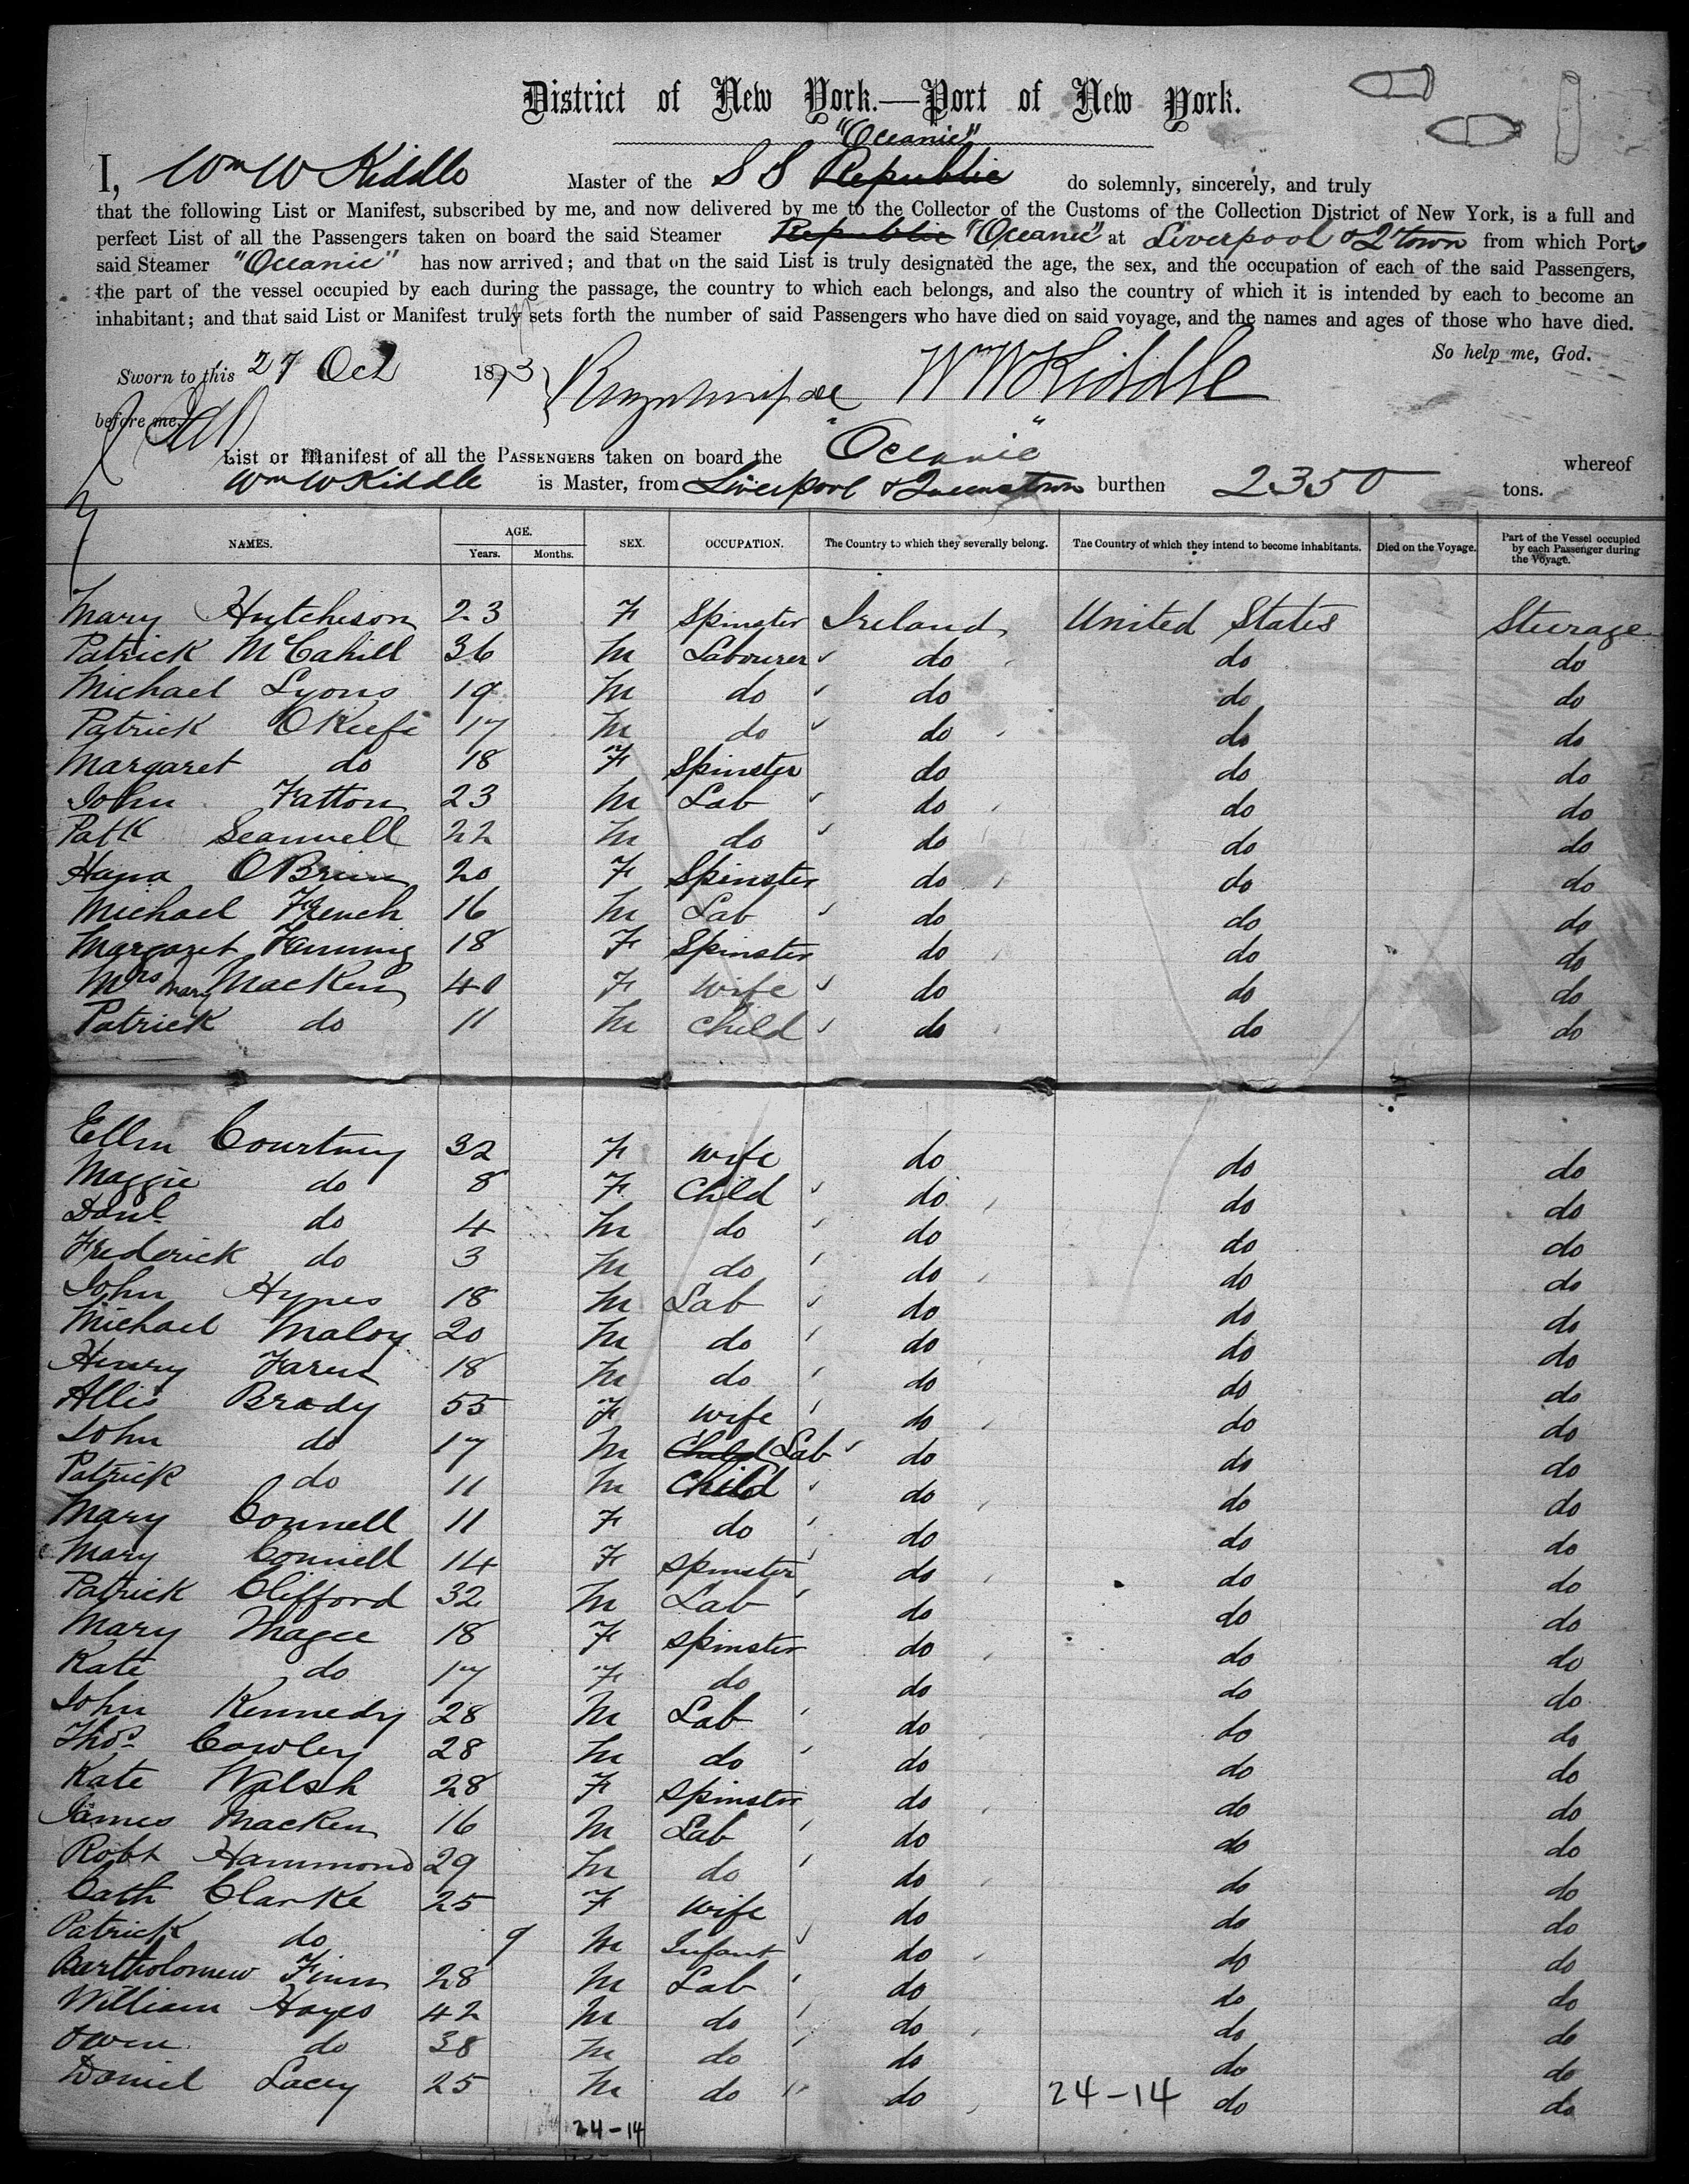 District of New York.—Port of New York.
"Oceanic"
I, Wm W Kiddle Master of the S S Republic do solemnly, sincerely, and truly
that the following List or Manifest, subscribed by me, and now delivered by me to the Collector of the Customs of the Collection District of New York, is a full and
perfect List of all the Passengers taken on board the said Steamer Republic "Oceanic" at Liverpool & Q'town from which Ports
said Steamer "Oceanic" has now arrived; and that on the said List is truly designated the age, the sex, and the occupation of each of the said Passengers,
the part of the vessel occupied by each during the passage, the country to which each belongs, and also the country of which it is intended by each to become an
inhabitant; and that said List or Manifest truly sets forth the number of said Passengers who have died on said voyage, and the names and ages of those who have died.
So help me, God.
Sworn to this 27 Oct 1873 Wm W Kiddle
before me
List or Manifest of all the PASSENGERS taken on board the "Oceanic" whereof
Wm W Kiddle is Master, from Liverpool & Queenstown burthen 2350 tons.
NAMES. AGE. Years. Months. SEX. OCCUPATION. The Country to which they severally belong. The Country of which they intend to become inhabitants. Died on the Voyage. Part of the Vessel occupied by each Passenger during the Voyage.
Mary Hutcheson 23 F Spinster Ireland United States Steerage
Patrick McCahill 36 M Labourer do do do
Michael Lyons 19 M do do do do
Patrick OKeefe 17 M do do do do
Margaret do 18 F Spinster do do do
John Fatton 23 M Lab do do do
Patk Scanwell 22 M do do do do
Hana OBrien 20 F Spinster do do do
Michael French 16 M Lab do do do
Margaret Fanning 18 F Spinster do do do
Mrs Mary Macken 40 F wife do do do
Patrick do 11 M child do do do
Ellen Courtney 32 F wife do do do
Maggie do 8 F Child do do do
Danl do 4 M do do do do
Frederick do 3 M do do do do
John Hynes 18 M Lab do do do
Michael Maloy 20 M do do do do
Henry Faren 18 M do do do do
Allis Brady 55 F wife do do do
John do 17 M Child Lab do do do
Patrick do 11 M Child do do do
Mary Connell 11 F do do do do
Mary Connell 14 F Spinster do do do
Patrick Clifford 32 M Lab do do do
Mary Magee 18 F spinster do do do
Kate do 17 F do do do do
John Kennedy 28 M Lab do do do
Thos Cowley 28 M do do do do
Kate Walsh 28 F spinster do do do
James Macken 16 M Lab do do do
Robt Hammond 29 M do do do do
Cath Clarke 25 F wife do do do
Patrick do 9 M Infant do do do
Bartholomew Finn 28 M Lab do do do
William Hayes 42 M do do do do
Owen do 38 M do do do do
Daniel Lacey 25 M do do 24-14 do do
24-14